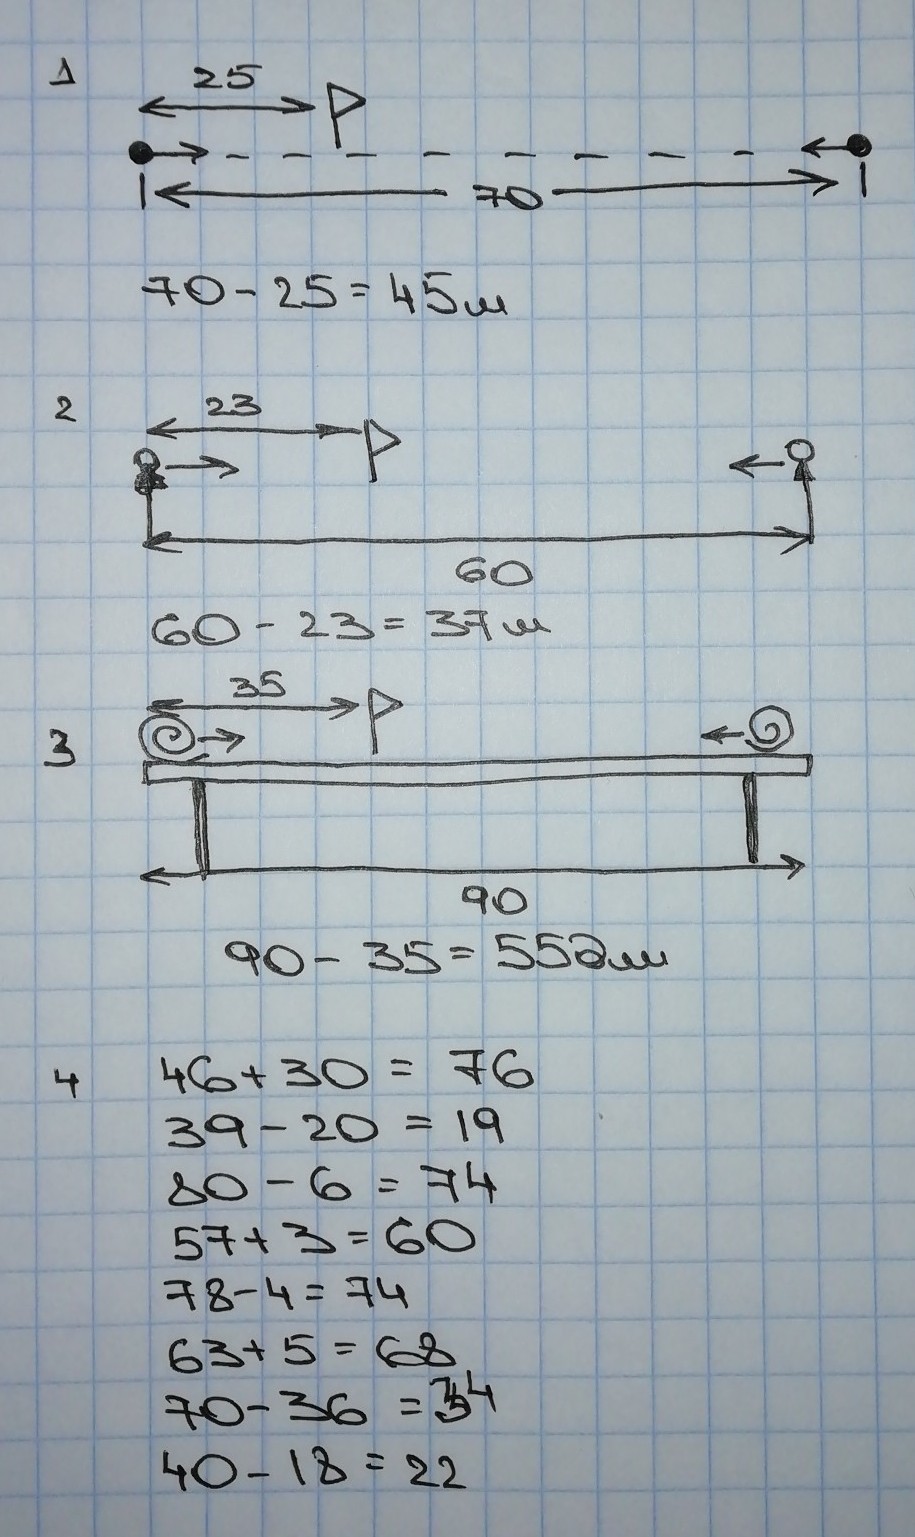 1
25
70
70 - 25 = 45м
2
23
60
60 - 23 = 37м
3
35
90
90 - 35 = 55дм
4
46 + 30 = 76
39 - 20 = 19
80 - 6 = 74
57 + 3 = 60
78 - 4 = 74
63 + 5 = 68
70 - 36 = 34
40 - 18 = 22